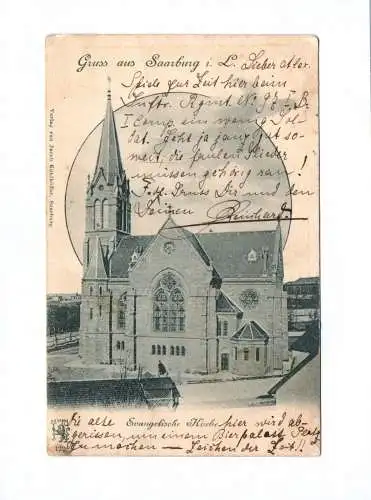 Gruss aus Saarburg i. L. Lieber Alex.
Spiele zur Zeit hier beim
Inftr. Rgmt. No
I Corps ein wenig Sol
dat. Geht ja ganz gut so-
weit, die faulen Glieder
müssen gehörig ran!
Gruss Dir und den
Deinen
Reinhard.
Verlag von Jacob Saarburg.
Evangelische Kirche
Die alte hier wird ab
gerissen um einem Bierpalast Platz
zu machen — Zeichen der Zeit!!